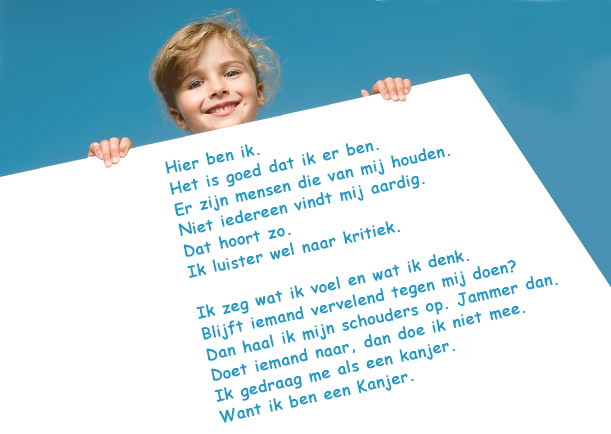 Hier ben ik.
Het is goed dat ik er ben.
Er zijn mensen die van mij houden.
Niet iedereen vindt mij aardig.
Dat hoort zo.
Ik luister wel naar kritiek.

Ik zeg wat ik voel en wat ik denk.
Blijft iemand vervelend tegen mij doen?
Dan haal ik mijn schouders op. Jammer dan.
Doet iemand naar, dan doe ik niet mee.
Ik gedraag me als een kanjer.
Want ik ben een Kanjer.